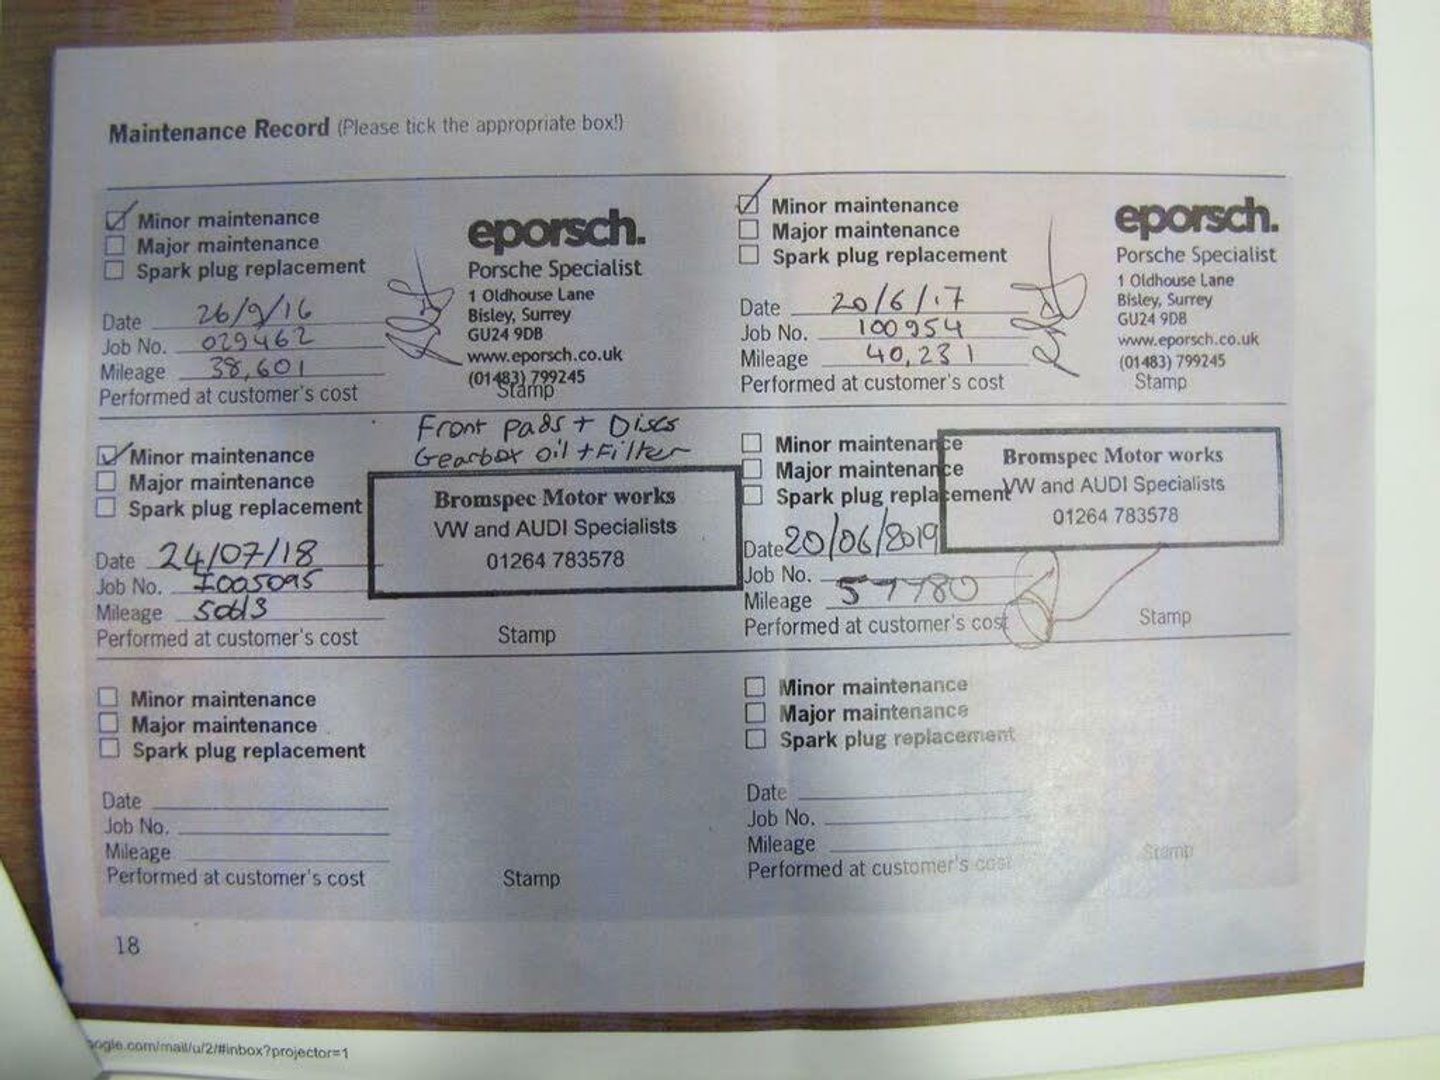 Maintenance Record (Please tick the appropriate box!)
Minor maintenance
Major maintenance
Spark plug replacement
Date 26/9/16
Job No. 029462
Mileage 38,601
Performed at customer's cost
eporsch.
Porsche Specialist
1 Oldhouse Lane
Bisley, Surrey
GU24 9DB
www.eporsch.co.uk
(01483) 799245
Stamp
Minor maintenance
Major maintenance
Spark plug replacement
Date 20/6/17
Job No. 100954
Mileage 40,231
Performed at customer's cost
eporsch.
Porsche Specialist
1 Oldhouse Lane
Bisley, Surrey
GU24 9DB
www.eporsch.co.uk
(01483) 799245
Stamp
Front pads + Discs
Gearbox oil + Filter
Minor maintenance
Major maintenance
Spark plug replacement
Date 24/07/18
Job No. I005095
Mileage
Performed at customer's cost
Bromspec Motor works
VW and AUDI Specialists
01264 783578
Stamp
Minor maintenance
Major maintenance
Spark plug replacement
Date 20/06/2019
Job No.
Mileage 57780
Performed at customer's cost
Bromspec Motor works
VW and AUDI Specialists
01264 783578
Stamp
Minor maintenance
Major maintenance
Spark plug replacement
Date
Job No.
Mileage
Performed at customer's cost
Stamp
Minor maintenance
Major maintenance
Spark plug replacement
Date
Job No.
Mileage
Performed at customer's cost
Stamp
18
oogle.com/mail/u/2/#inbox?projector=1